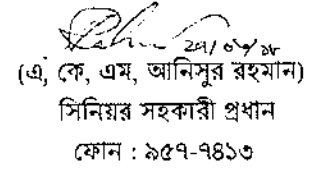 (এ, কে, এম, আনিসুর রহমান)
সিনিয়র সহকারী প্রধান
ফোন : ৯৫৭-৭৪১৩